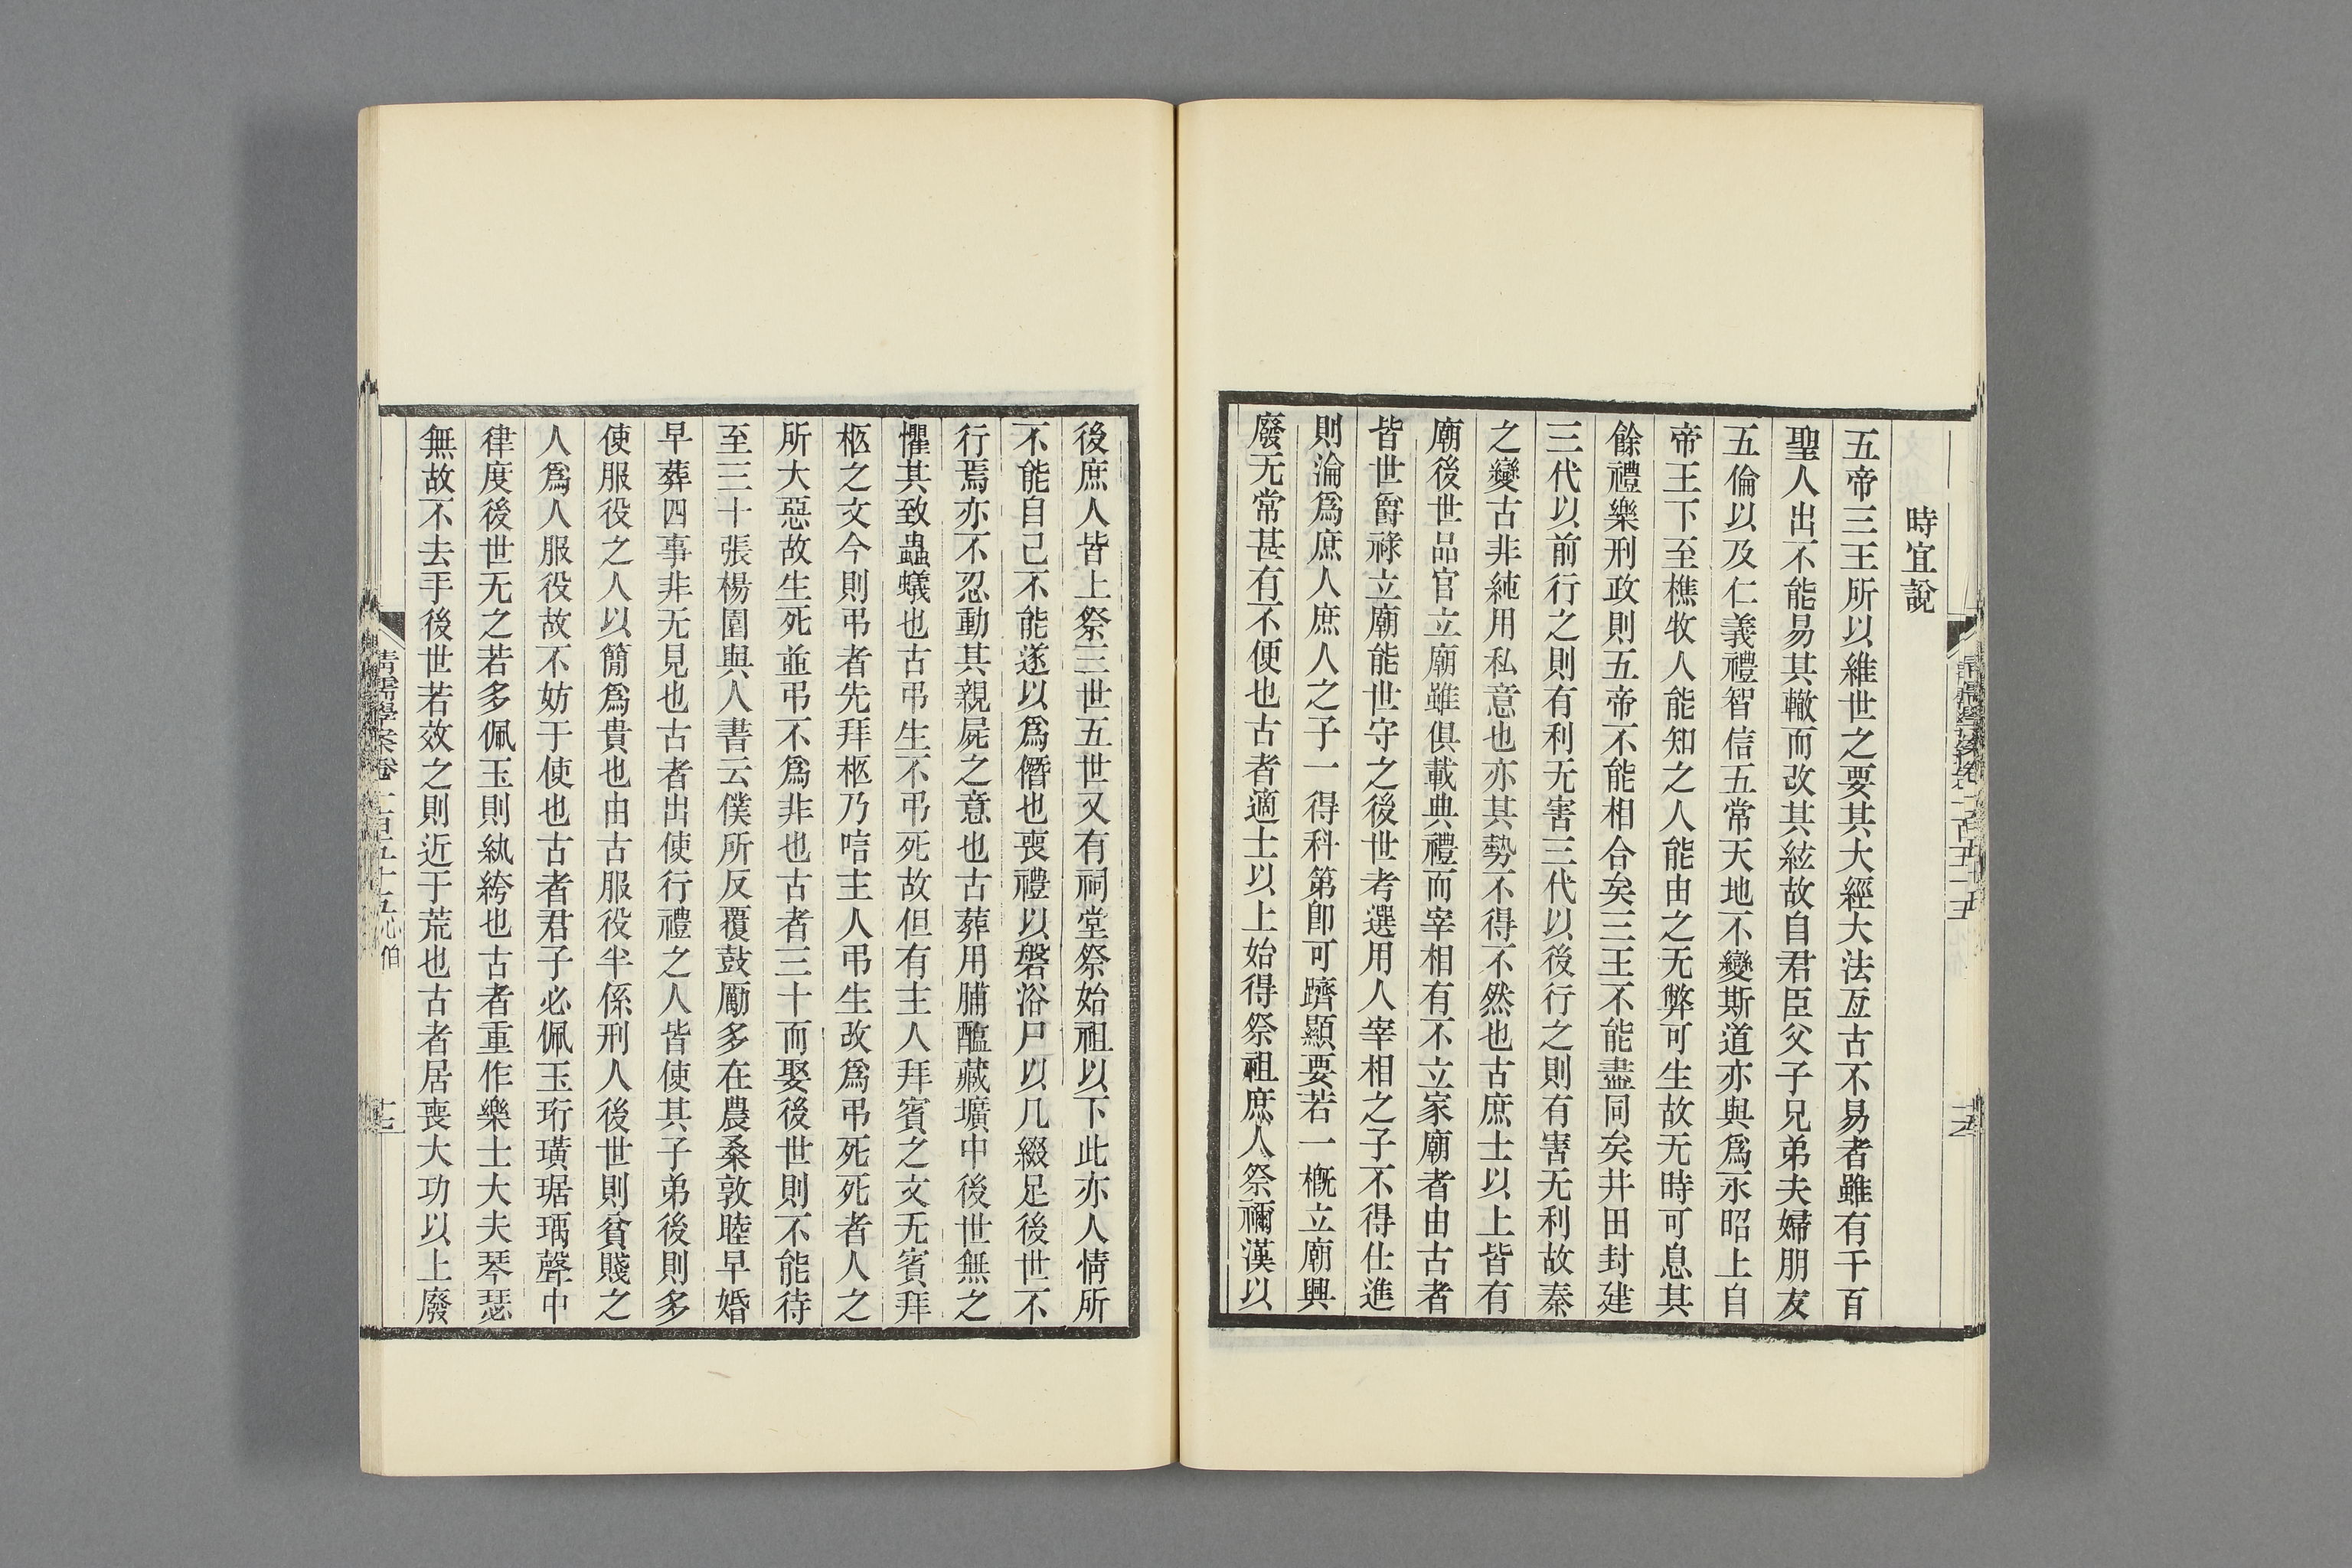 時宜說
五帝三王所以維世之要其大經大法亙古不易者雖有千百
聖人出不能易其轍而改其絃故自君臣父子兄弟夫婦朋友
五倫以及仁義禮智信五常天地不變斯道亦與爲永昭上自
帝王下至樵牧人能知之人能由之无弊可生故无時可息其
餘禮樂刑政則五帝不能相合矣三王不能盡同矣井田封建
三代以前行之則有利无害三代以後行之則有害无利故秦
之變古非純用私意也亦其勢不得不然也古庶士以上皆有
廟後世品官立廟雖俱載典禮而宰相有不立家廟者由古者
皆世爵祿立廟能世守之後世考選用人宰相之子不得仕進
則淪爲庶人庶人之子一得科第卽可躋顯要若一槪立廟興
廢无常甚有不便也古者適士以上始得祭祖庶人祭禰漢以
後庶人皆上祭三世五世又有祠堂祭始祖以下此亦人情所
不能自己不能遂以爲僭也喪禮以磐浴尸以几綴足後世不
行焉亦不忍動其親屍之意也古葬用脯醢藏壙中後世無之
懼其致蟲蟻也古弔生不弔死故但有主人拜賓之文无賓拜
柩之文今則弔者先拜柩乃唁主人弔生改爲弔死死者人之
所大惡故生死並弔不爲非也古者三十而娶後世則不能待
至三十張楊園與人書云僕所反覆鼓勵多在農桑敦睦早婚
早葬四事非无見也古者出使行禮之人皆使其子弟後則多
使服役之人以簡爲貴也由古服役半係刑人後世則貧賤之
人爲人服役故不妨于使也古者君子必佩玉珩璜琚瑀聲中
律度後世无之若多佩玉則紈絝也古者重作樂士大夫琴瑟
無故不去手後世若效之則近于荒也古者居喪大功以上廢